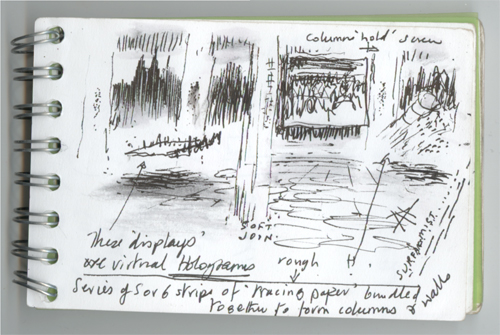 columns 'hold' screen
SOFT
JOIN
These 'displays'
are virtual Holograms
rough
Series of 5 or 6 strips of 'tracing paper' bundled
together to form columns & walls